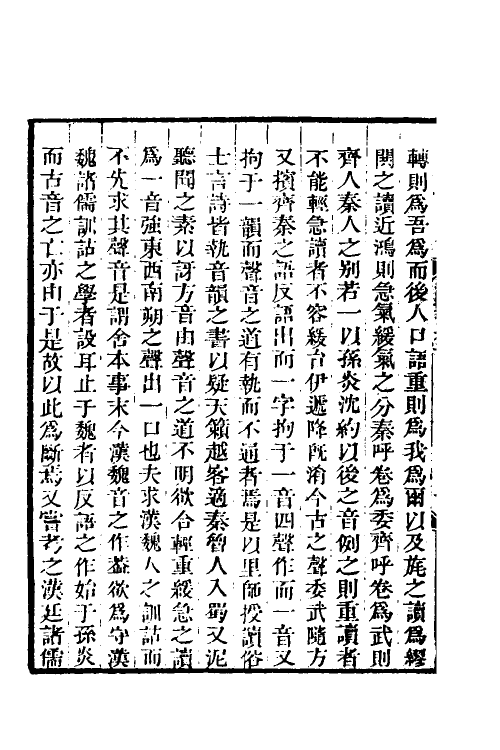 轉則爲吾爲而後人口語重則爲我爲爾以及旄之讀爲繆
閧之讀近鴻則急氣緩氣之分秦呼卷爲委齊呼卷爲武則
齊人秦人之別若一以孫炎沈約以後之音例之則重讀者
不能輕急讀者不容緩台伊遞降旣淆今古之聲委武隨方
又擯齊秦之語反語出而一字拘于一音四聲作而一音又
拘于一韻而聲音之道有執而不通者焉是以里師授讀俗
士言詩皆執音韻之書以疑天籟越客適秦魯人入蜀又泥
聽聞之素以訝方音由聲音之道不明欲合輕重緩急之讀
爲一音強東西南朔之聲出一口也夫求漢魏人之訓詁而
不先求其聲音是謂舍本事末今漢魏音之作蓋欲爲守漢
魏諸儒訓詁之學者設耳止于魏者以反語之作始于孫炎
而古音之亡亦由于是故以此爲斷焉又嘗考之漢廷諸儒